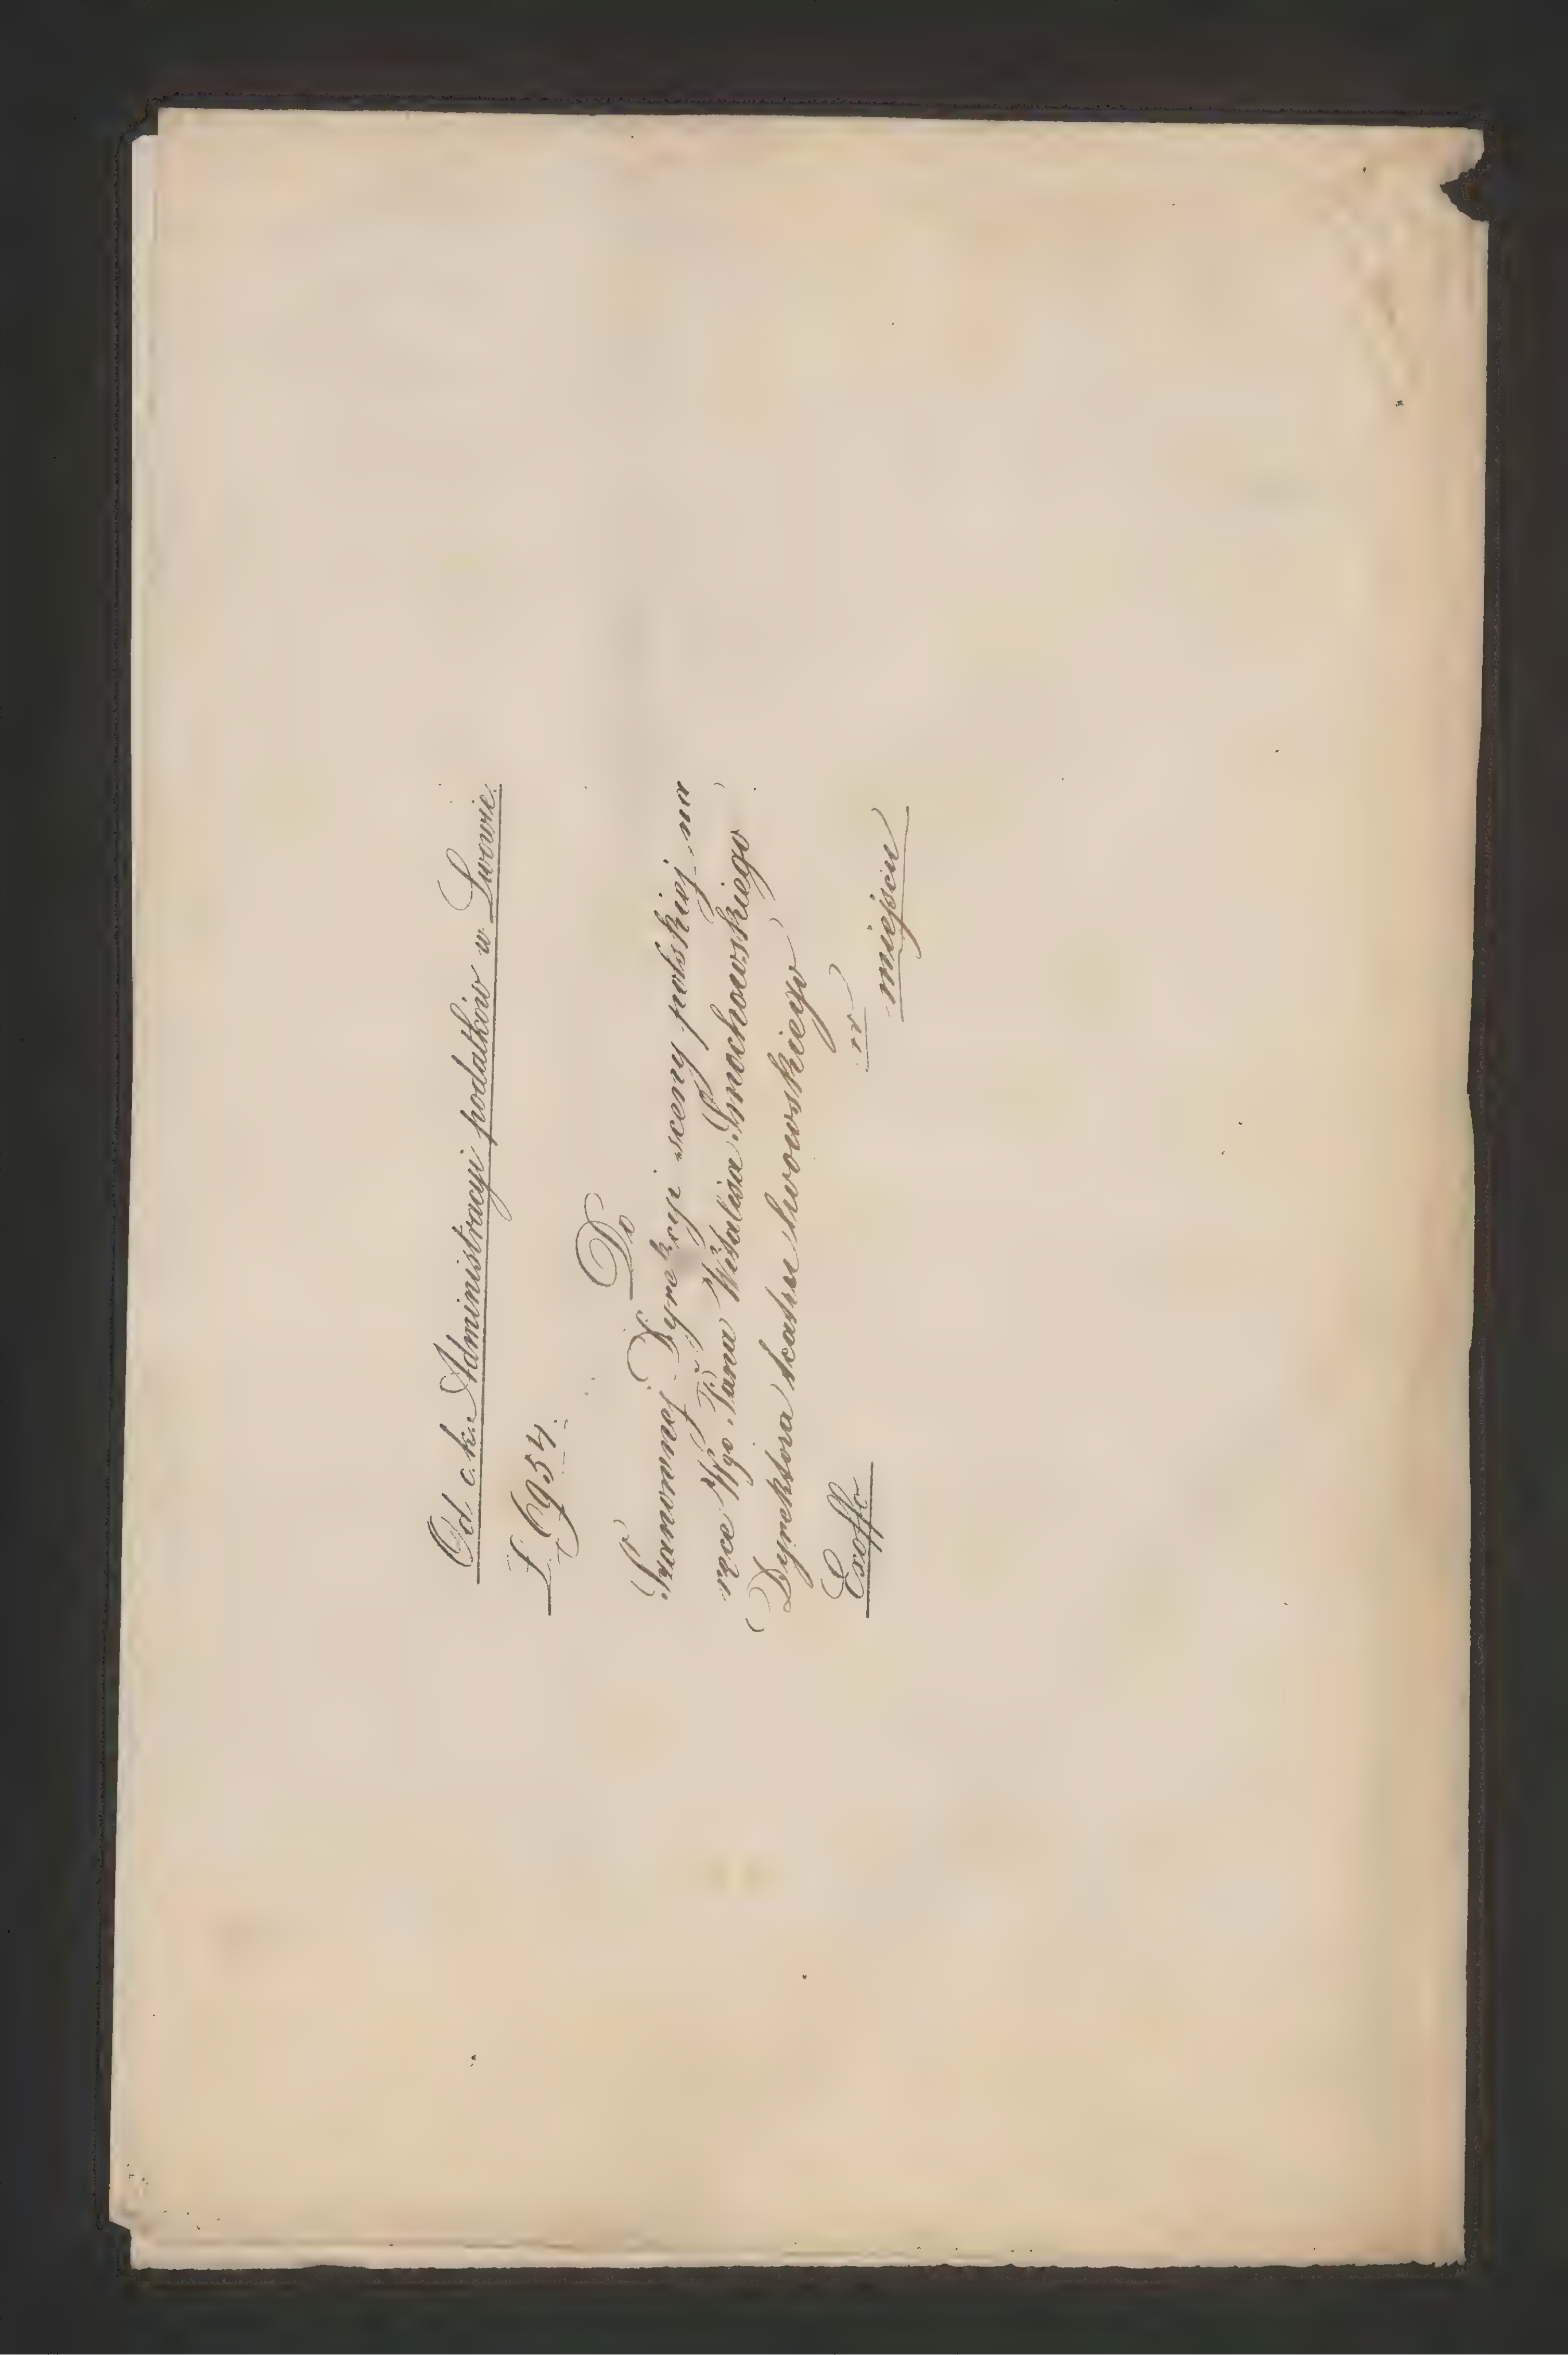 Od c. k. Administracyi podatków w Lwowie.
L. 6954.
Do
Szanownej Dyrekcyi sceny polskiej na
ręce Wgo Pana Witalisa Smochowskiego
Dyrektora teatru lwowskiego
w
Exoffo
miejscu